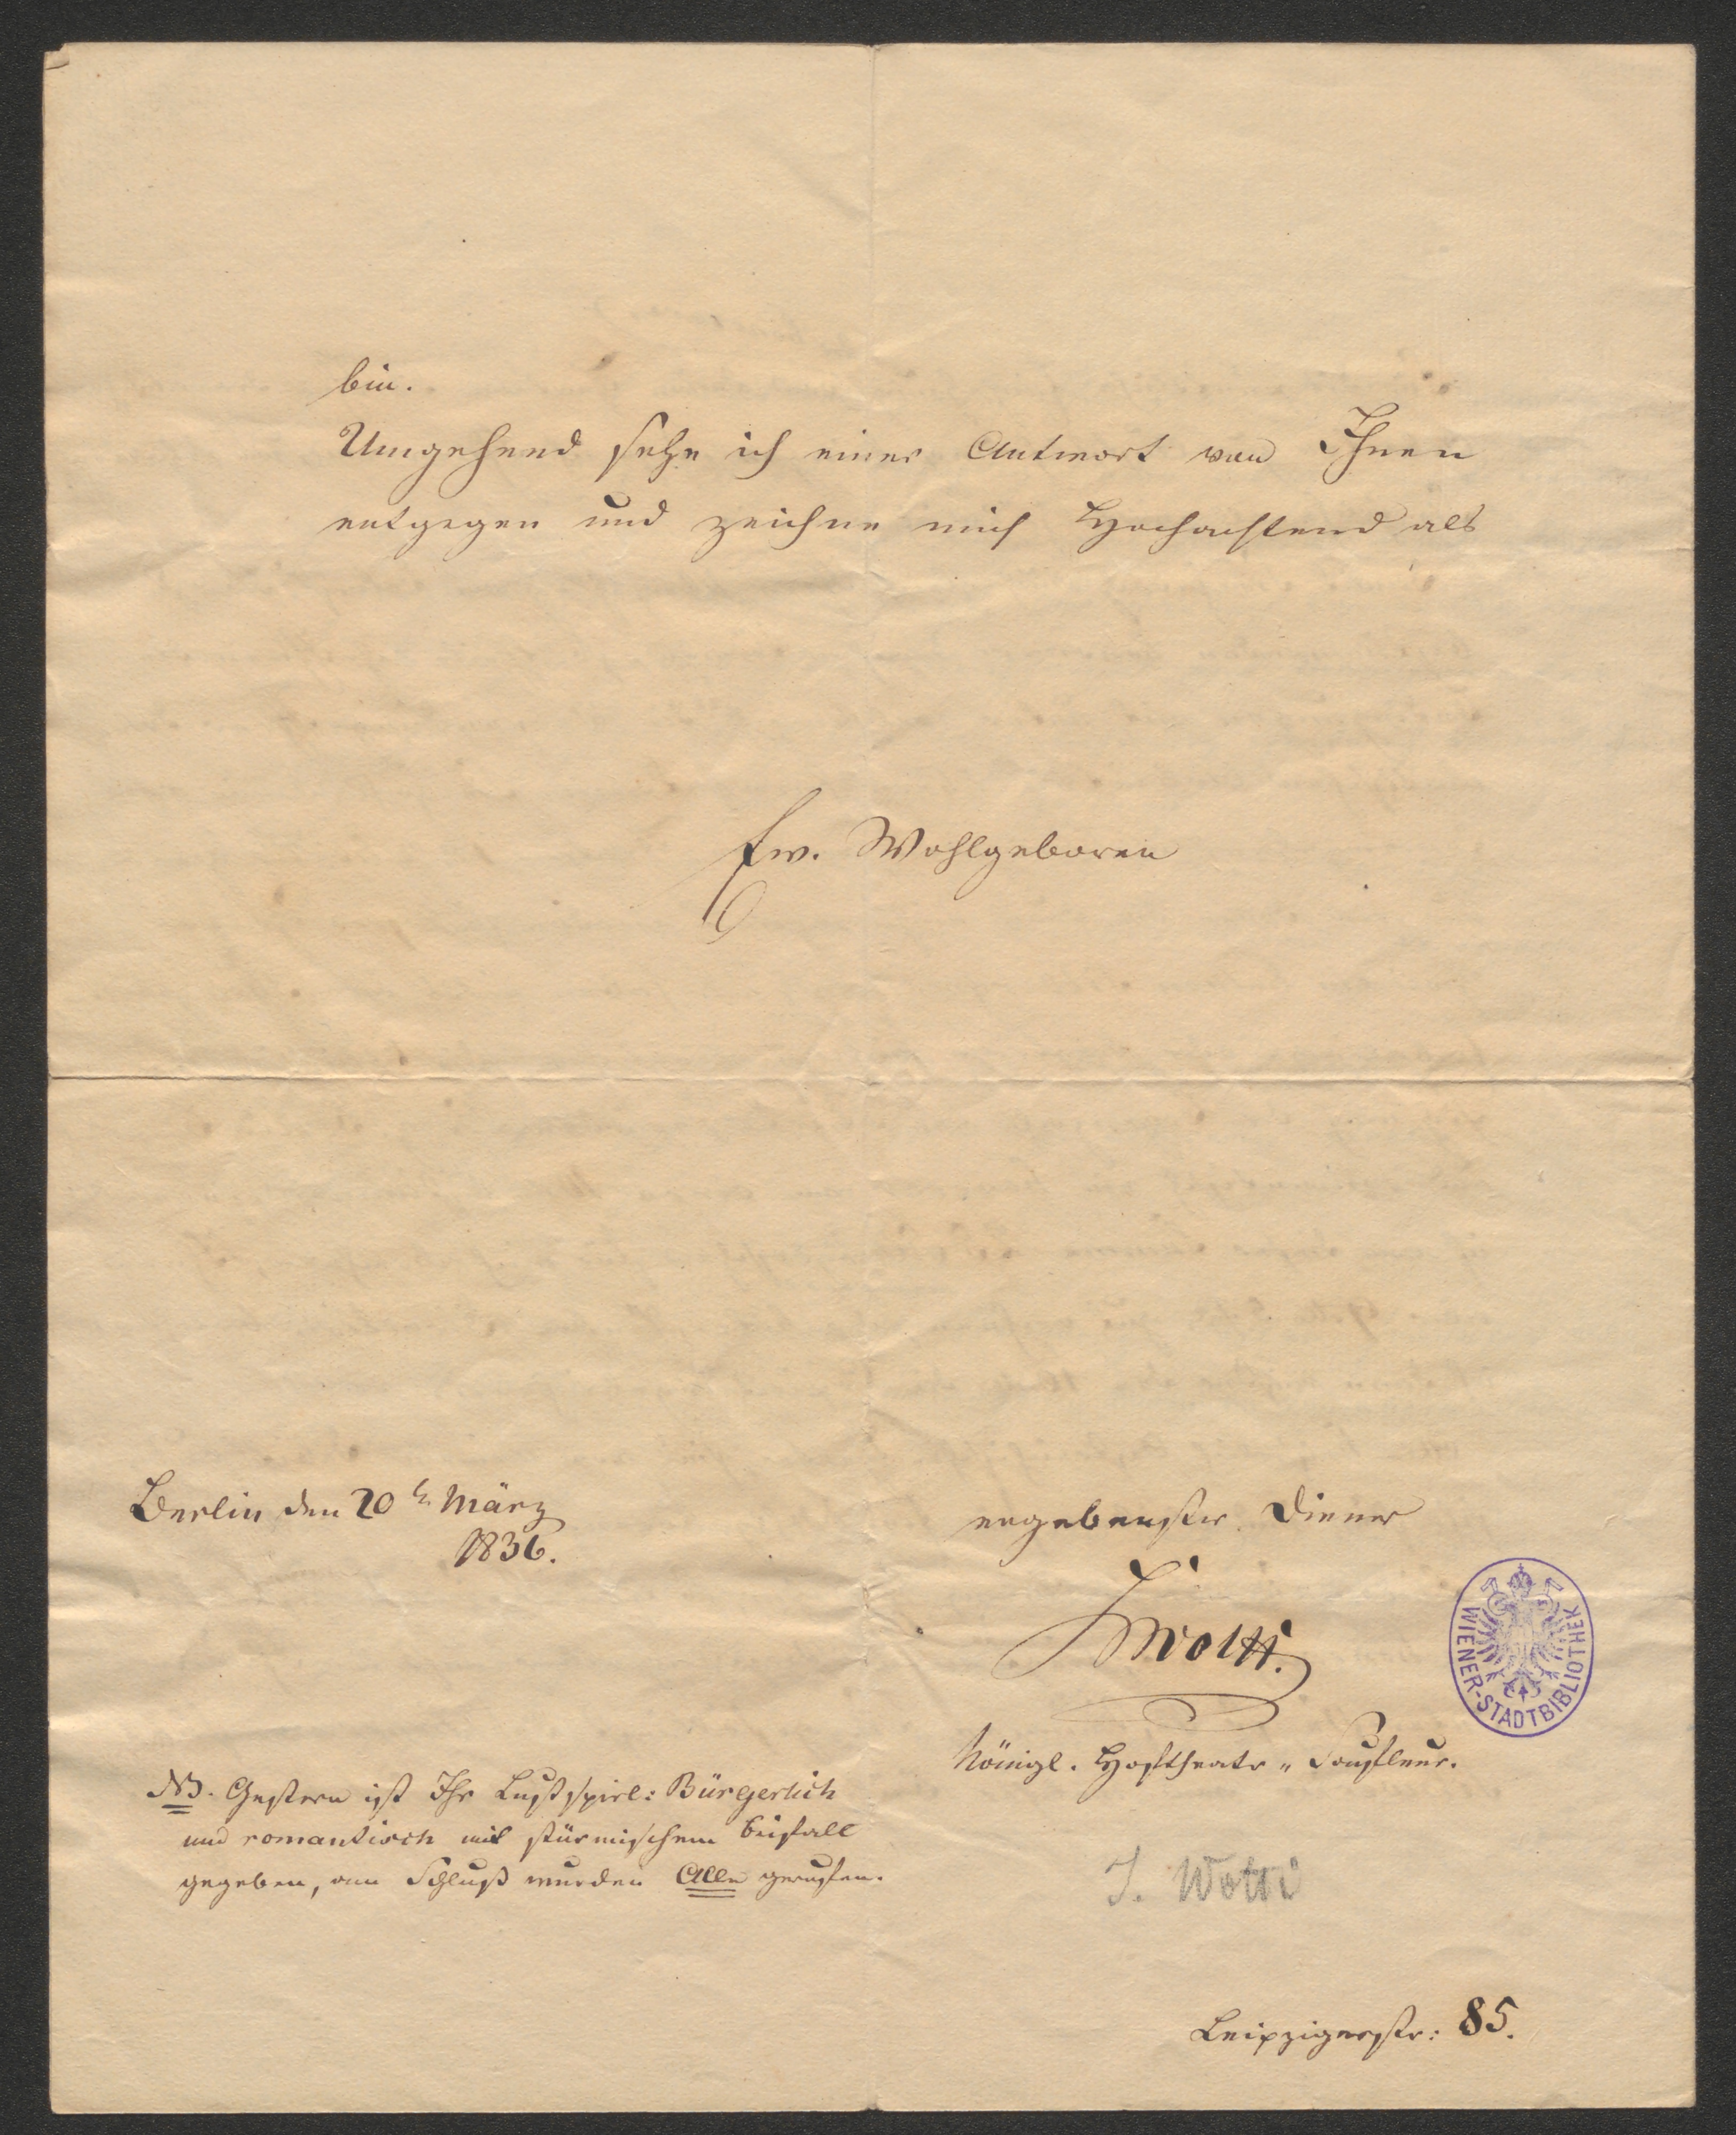 bin.
Umgehend sehe ich einer Antwort von Ihnen
entgegen und zeichne mich Hochachtend als
Ew. Wohlgeboren
Berlin den 20t. März
1836.
ergebenster Diener
JWolti.
Königl. Hoftheatr = Soufleur.
NB. Gestern ist Ihr Lustspiel: Bürgerlich
und romantisch mit stürmischem Beifall
gegeben, am Schluß wurden Alle gerufen.
J. Wolti
WIENER-STADTBIBLIOTHEK
Leipzigerstr: 85.